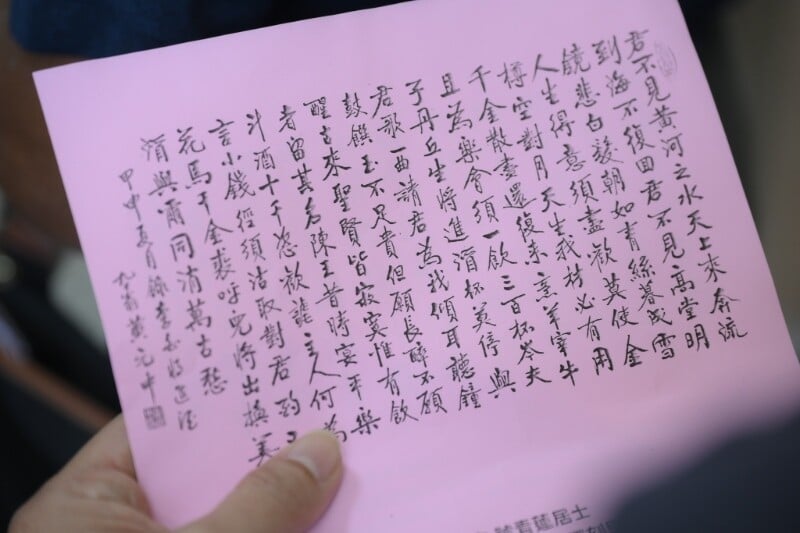 君不見黃河之水天上來奔流
到海不復回君不見高堂明
鏡悲白髮朝如青絲暮成雪
人生得意須盡歡莫使金
樽空對月天生我材必有用
千金散盡還復來烹羊宰牛
且為樂會須一飲三百杯岑夫
子丹丘生將進酒杯莫停與
君歌一曲請君為我傾耳聽鐘
鼓饌玉不足貴但願長醉不願
醒古來聖賢皆寂寞惟有飲
者留其名陳王昔時宴平樂
斗酒十千恣歡謔主人何為
言小錢徑須沽取對君酌五
花馬千金裘呼兒將出換美
酒與爾同消萬古愁
甲申夏月錄李白將進酒
號青蓮居士